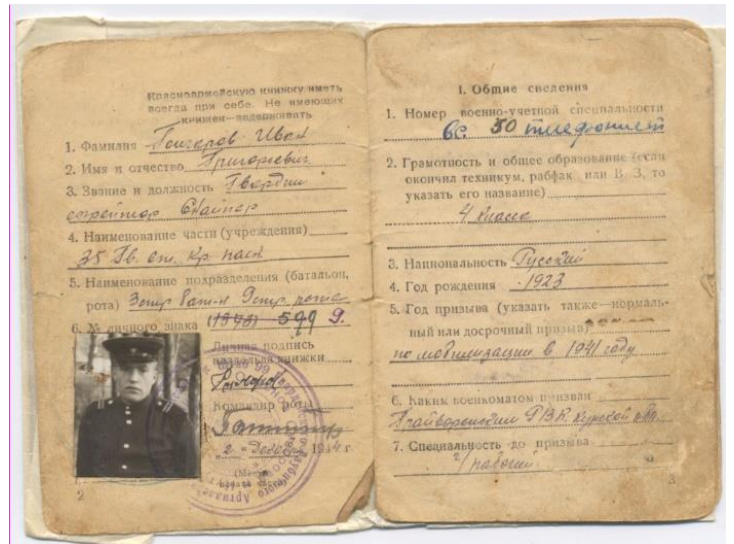 Красноармейскую книжку иметь
всегда при себе. Не имеющих
книжек—задерживать
1. Фамилия Гончаров Иван
2. Имя и отчество Григорьевич
3. Звание и должность Гвардии
ефрейтор Снайпер
4. Наименование части (учреждения)
35 Гв. Кр.
5. Наименование подразделения (батальон,
рота) рота
6. № личного знака 599
Личная подпись
владельца книжки
Командир роты
2 1944 г.
2
I. Общие сведения
1. Номер военно-учетной специальности
50 телефонист
2. Грамотность и общее образование (если
окончил техникум, рабфак или В. З, то
указать его название)
4 класса
3. Национальность Русский
4. Год рождения 1923
5. Год призыва (указать также—нормаль-
ный или досрочный призыв)
по мобилизации в 1941 году
6. Каким военкоматом призван
Грайворонским РВК Курской обл.
7. Специальность до призыва
рабочий
3